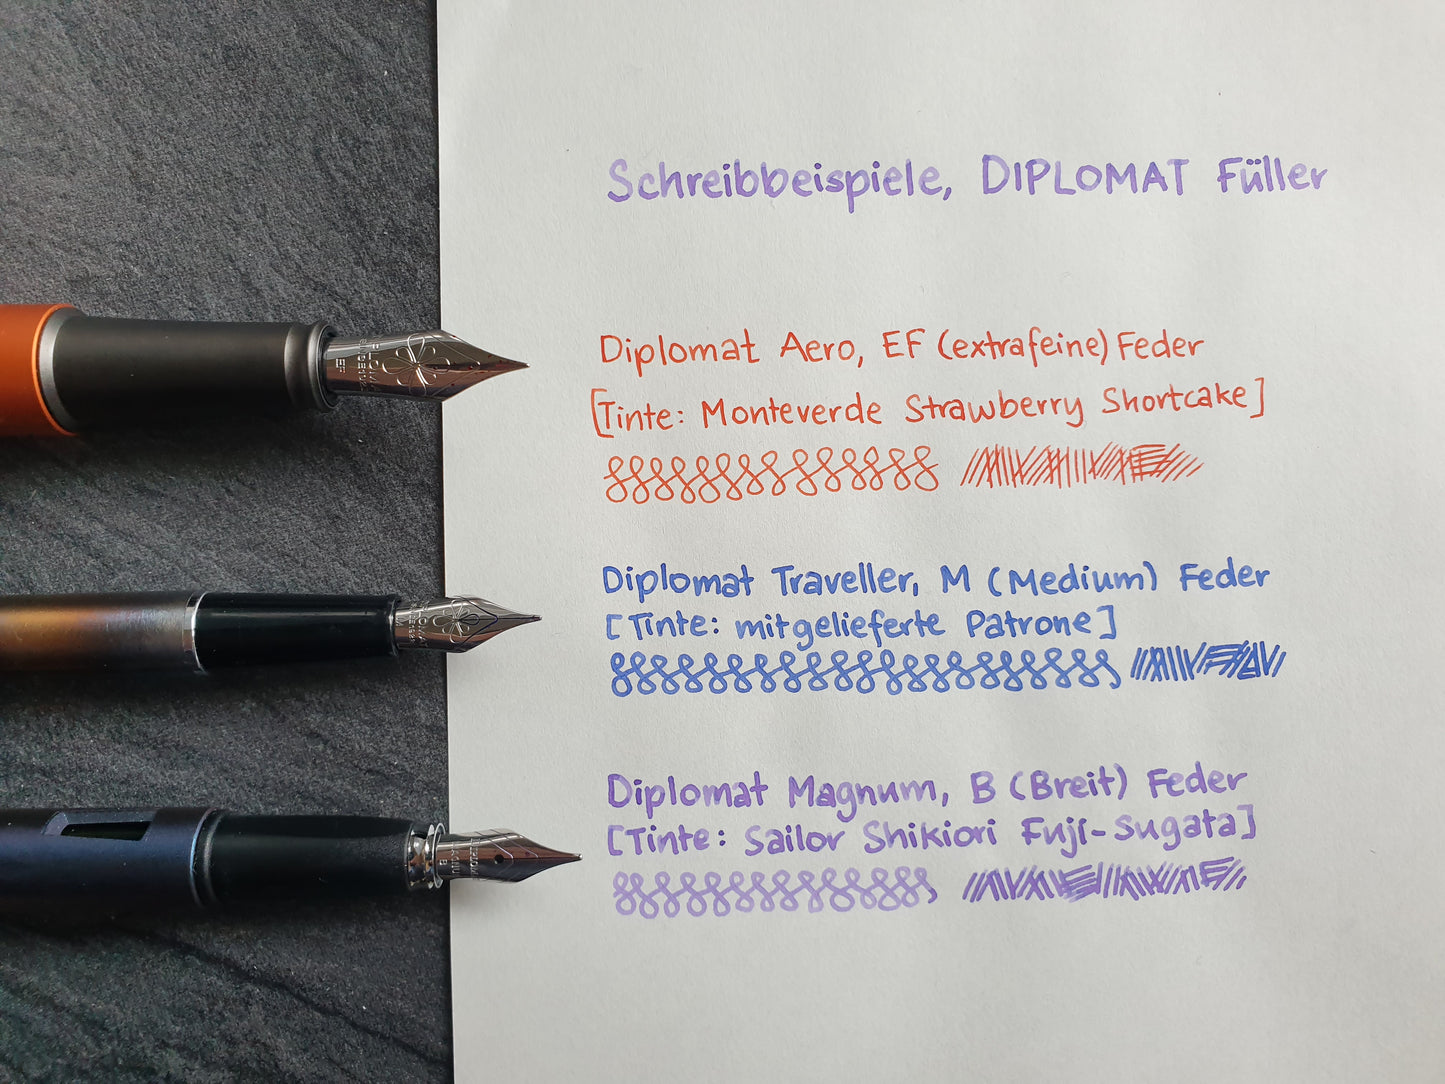 Schreibbeispiele, DIPLOMAT Füller
Diplomat Aero, EF (extrafeine) Feder
[Tinte: Monteverde Strawberry Shortcake]
Diplomat Traveller, M (Medium) Feder
[Tinte: mitgelieferte Patrone]
Diplomat Magnum, B (Breit) Feder
[Tinte: Sailor Shikiori Fuji-Sugata]